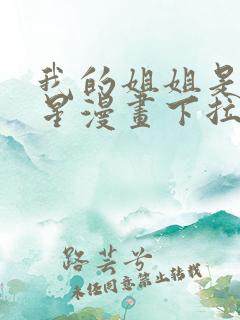 我的姐姐是
星漫畫下拉
路芸兮
未经同意禁止转载